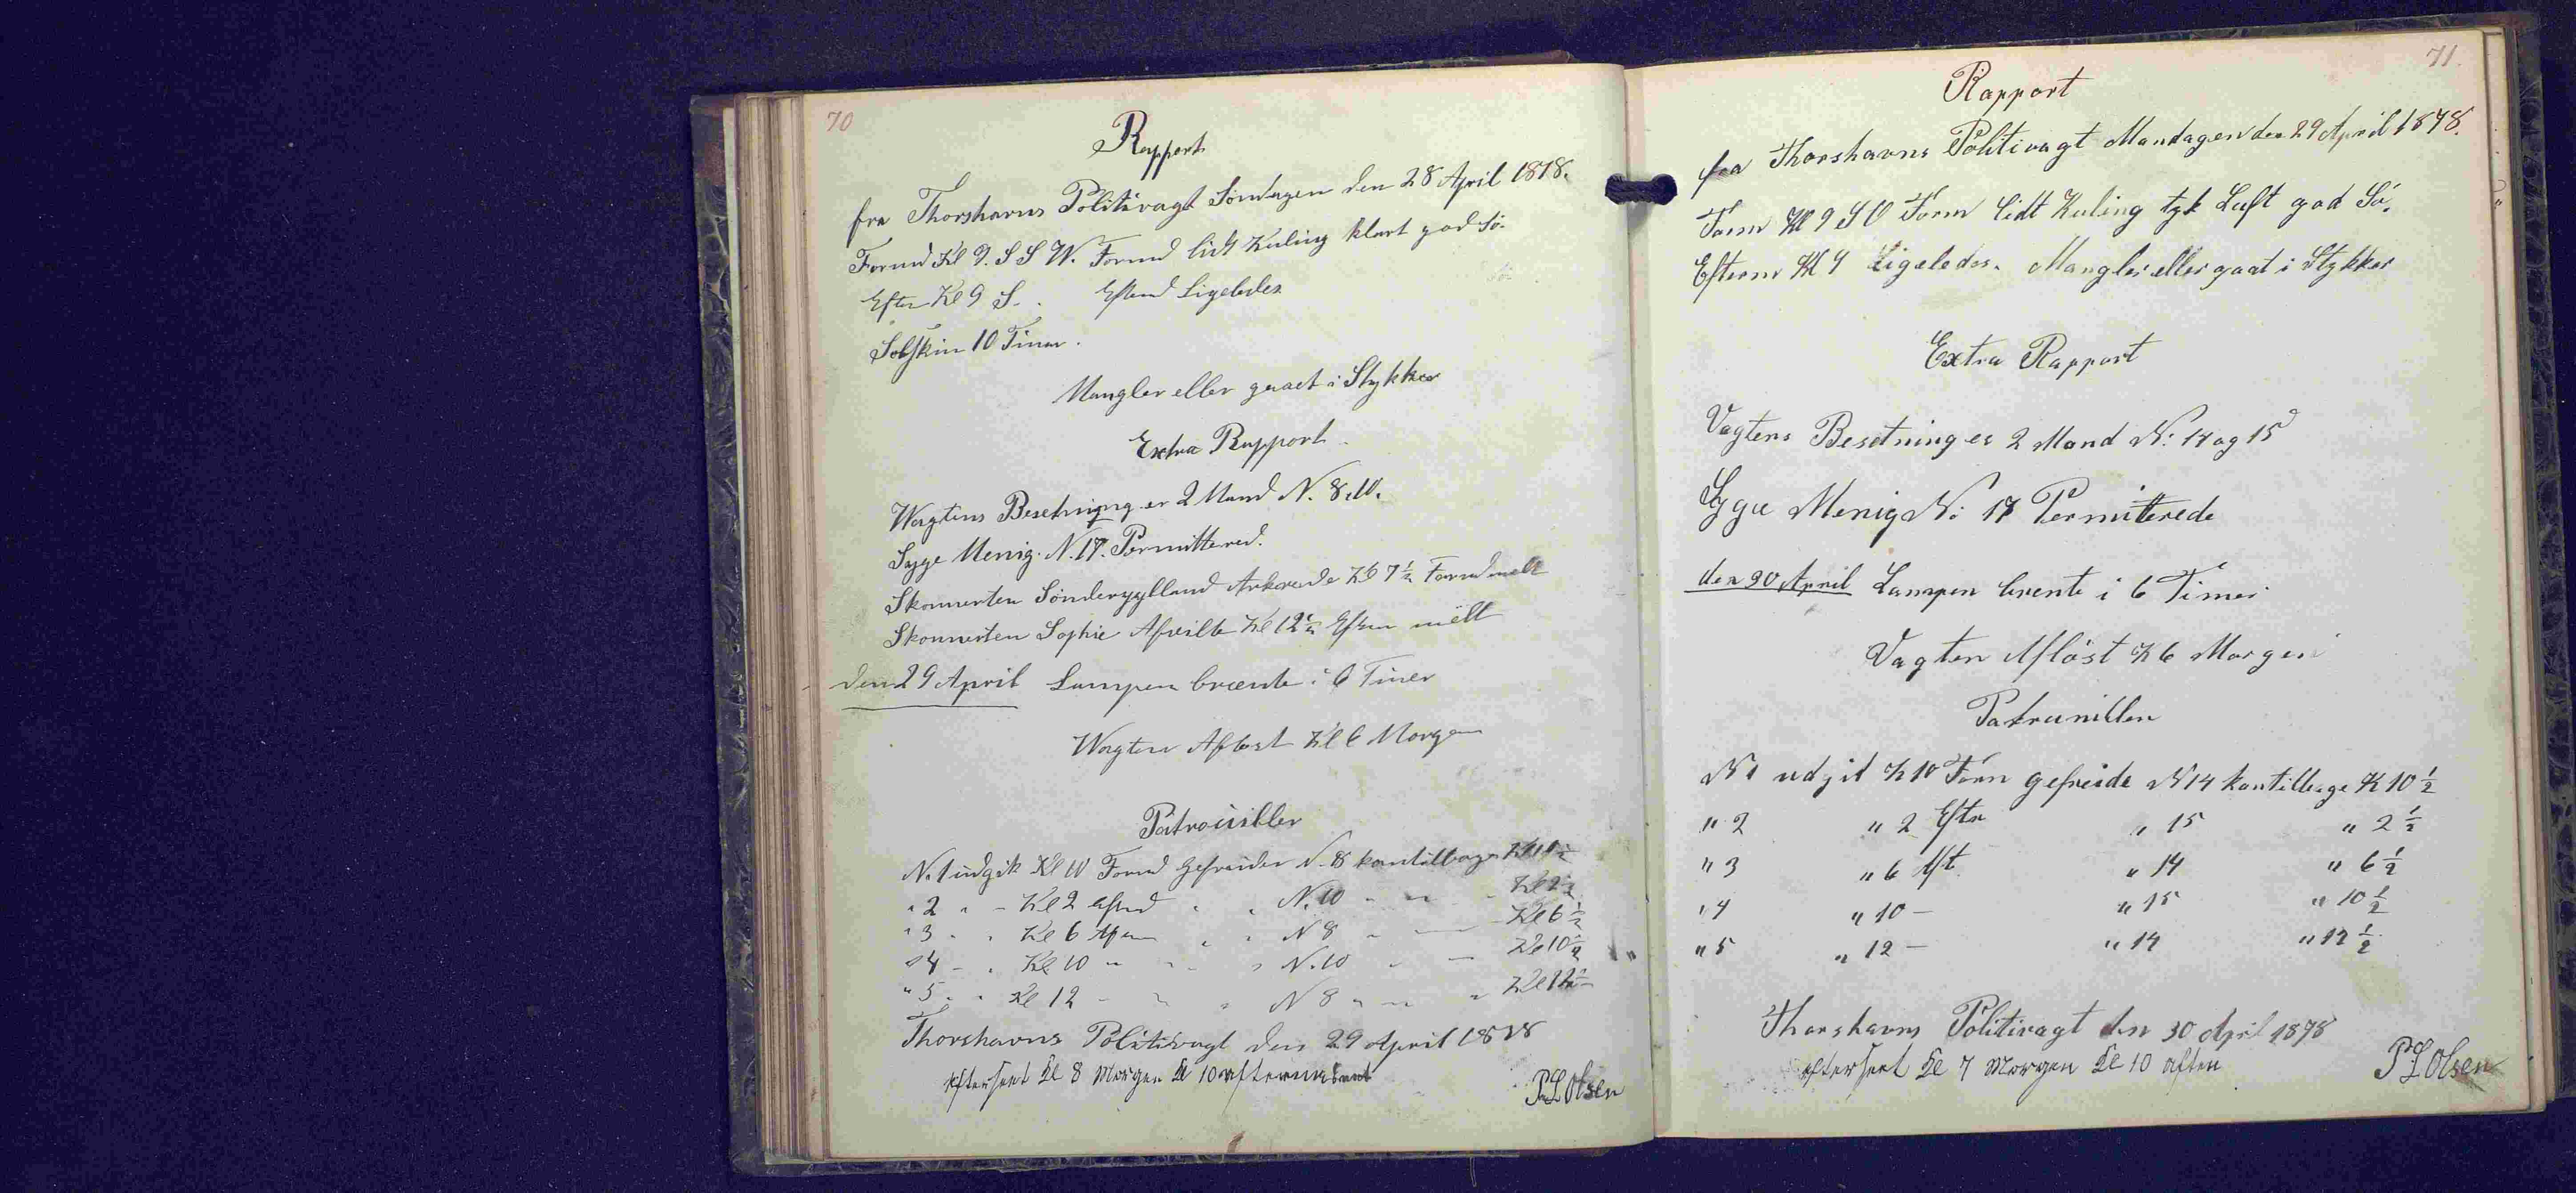 70
Rapport
fra Thorshavns Politivagt Søndagen den 28 April 1878.
Formd Kl 9. S S W. Formd lidt Kuling klart god Sø.
Efter Kl 9 S. . Eftmd Ligeledes
Solskin 10 Timer.
Mangler eller gaaet i Stykker
Extra Rapport.
Wagtens Besetning er 2 Mand N. 8. 10.
Syge Menig. N. 17. Permittered.
Skonnerten Sønderjylland Ankerede Kl 7 1/2 Formd melt
Skonnerten Sophie Afseilte Kl 12 1/2 Efter melt
den 29 April Lampen brænte i 6 Timer
Wagten Afløst Kl 6 Morgen
Patrouiller
N. 1 udgik Kl 10 Formd Gefreider N. 8 komtilbage Kl 10 1/2
" 2 " - Kl 2 Eftmd " " N. 10 " " - Kl 2 1/2
" 3 " " Kl 6 Aften " " N 8 " - Kl 6 1/2
" 4 - " Kl 10 " " " N. 10 " - Kl 10 1/2
" 5 " " Kl 12 - " " N 8 " " " Kl 12 1/2
Thorshavns Politivagt den 29 April 1878
efterseet Kl 8 Morgen Kl 10
P. L Olsen
71.
Rapport
fra Thorshavns Politivagt Mandagen den 29 April 1878.
Form Kl 9 S O Form lidt Kuling tyk Luft god Sø.
Efterm Kl 4 Ligeledes. Mangler eller gaat i Stykker
Extra Rapport
Vagtens Besetning er 2 Mand N: 14 og 15
Syge Menig N: 17 Permitterede
den 30 April Lampen brente i 6 Timer
Vagten Afløst K 6 Morgen
Patrouillen
N 1 udgik K 10 Form gefreide N 14 komtilbage K 10 1/2
" 2 " 2 Eftr " 15 " 2 1/2
" 3 " 6 Aft " 14 " 6 1/2
" 4 " 10 - " 15 " 10 1/2
" 5 " 12 - " 14 " 12 1/2
Thorshavns Politivagt den 30 April 1878
efterseet Kl 7 Morgen Kl 10 aften
P. L Olsen